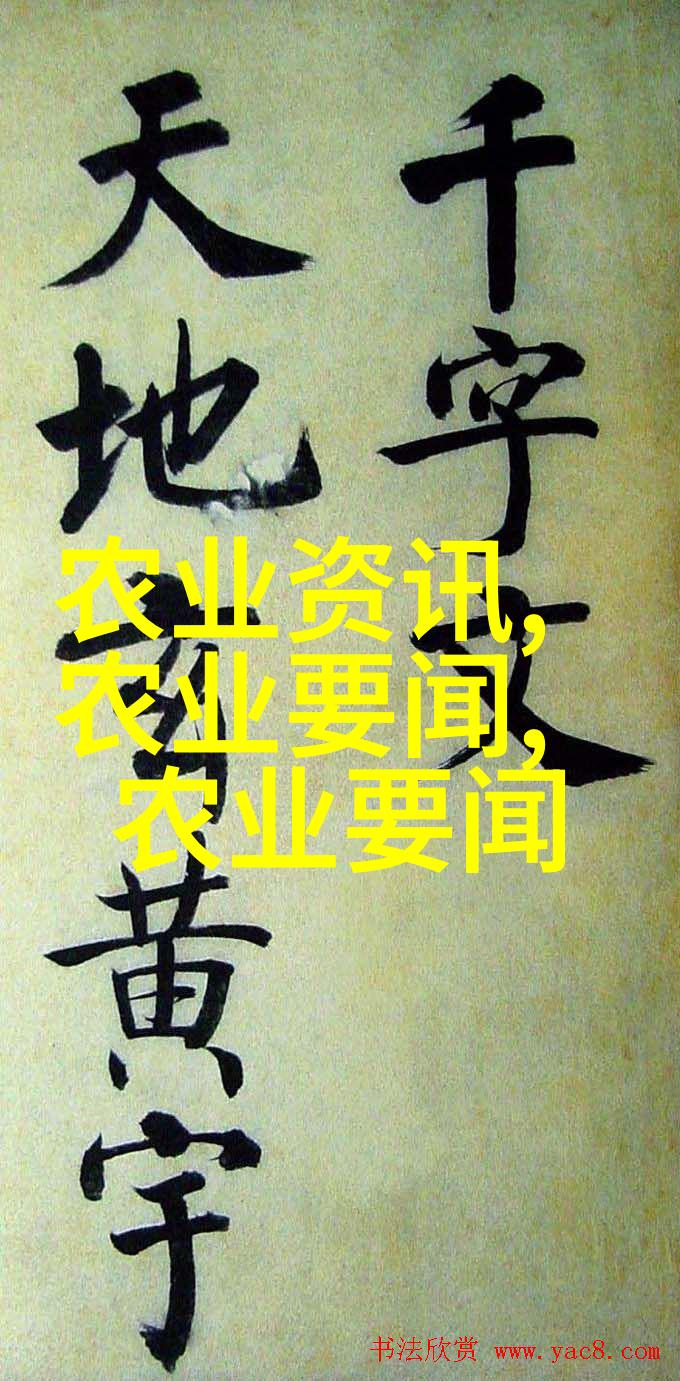 千字文
天地黄宇
农业资讯,
农业要闻,
农业要闻
书法欣赏 www.yac8.com